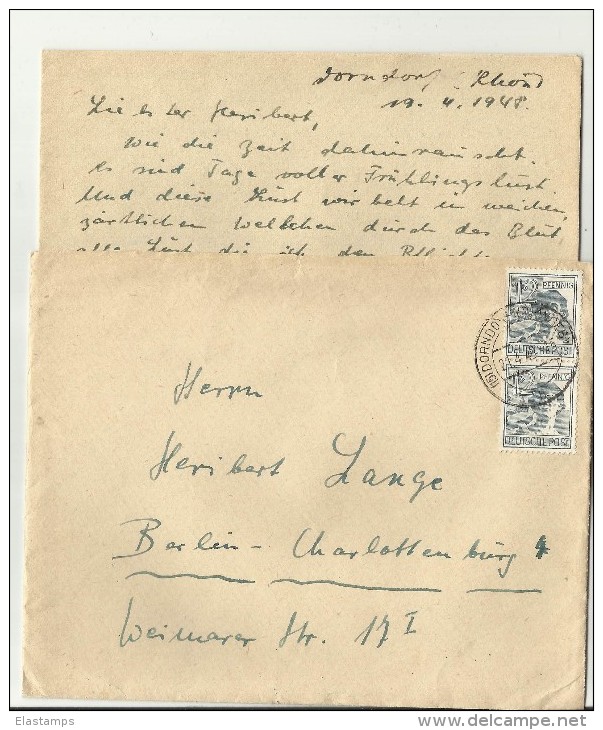 Dorndorf (Rhön)
19. 4. 1948.
Lieber Heribert,
Wie die Zeit dahinrauscht.
Es sind Tage voller Frühlingslust.
Und diese Lust wirbelt in weichen,
zärtlichen Wellchen durch das Blut,
alle Lust die ich den
PFENNIG
DEUTSCHE POST
PFENNIG
DEUTSCHE POST
Herrn
Heribert Lange
Berlin-Charlottenburg 4
Weimarer Str. 17 I
Elastamps
www.delcampe.net